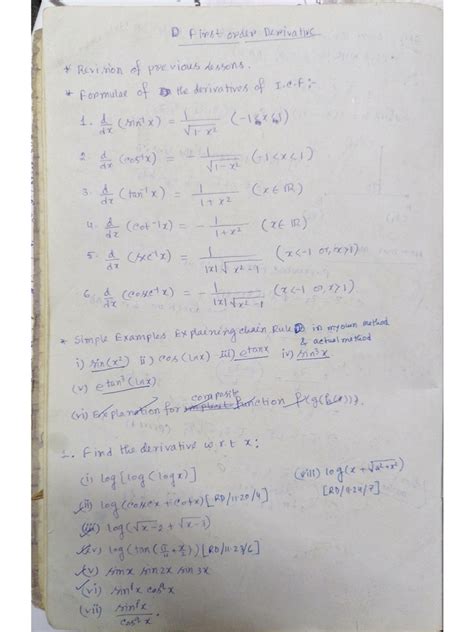 First order Derivative
* Revision of previous lessons.
* Formulae of the derivatives of I.C.F:-
1. d/dx (sin⁻¹x) = 1/√(1-x²) (-1<x<1)
2. d/dx (cos⁻¹x) = -1/√(1-x²) (-1<x<1)
3. d/dx (tan⁻¹x) = 1/(1+x²) (x∈ℝ)
4. d/dx (cot⁻¹x) = -1/(1+x²) (x∈ℝ)
5. d/dx (sec⁻¹x) = 1/(|x|√(x²-1)) (x<-1 or, x>1)
6. d/dx (cosec⁻¹x) = -1/(|x|√(x²-1)) (x<-1 or, x>1)
* Simple Examples Explaining chain Rule in my own method & actual method
i) sin(x²) ii) cos(lnx) iii) e^tanx iv) sin³x
(v) e^tan³(lnx)
(vi) Explanation for composit function f(g(h(x))).
1. Find the derivative w.r.t x:
(i) log[log(logx)]
(ii) log(cosecx + cotx) [RD/11.20/4]
(iii) log(√x-2 + √x-1)
(iv) log(tan(π/4 + x/2)) [RD/11.27/6]
(v) sinx sin2x sin3x
(vi) sin⁴x cos⁴x
(vii)
(viii) log(x + √(a²+x²))